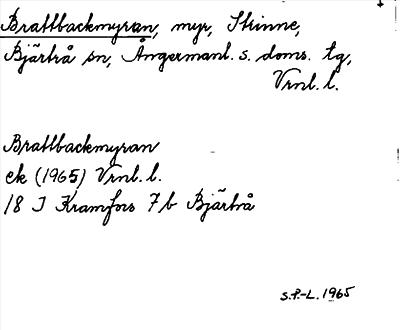 Brattbackmyran, myr, Strinne,
Bjärtrå sn, Ångermanl. s. doms. tg,
Vrnl. l.
Brattbackmyran
ek (1965) Vrnl. l.
18 I Kramfors 7 b Bjärtrå
S.P.-L. 1965